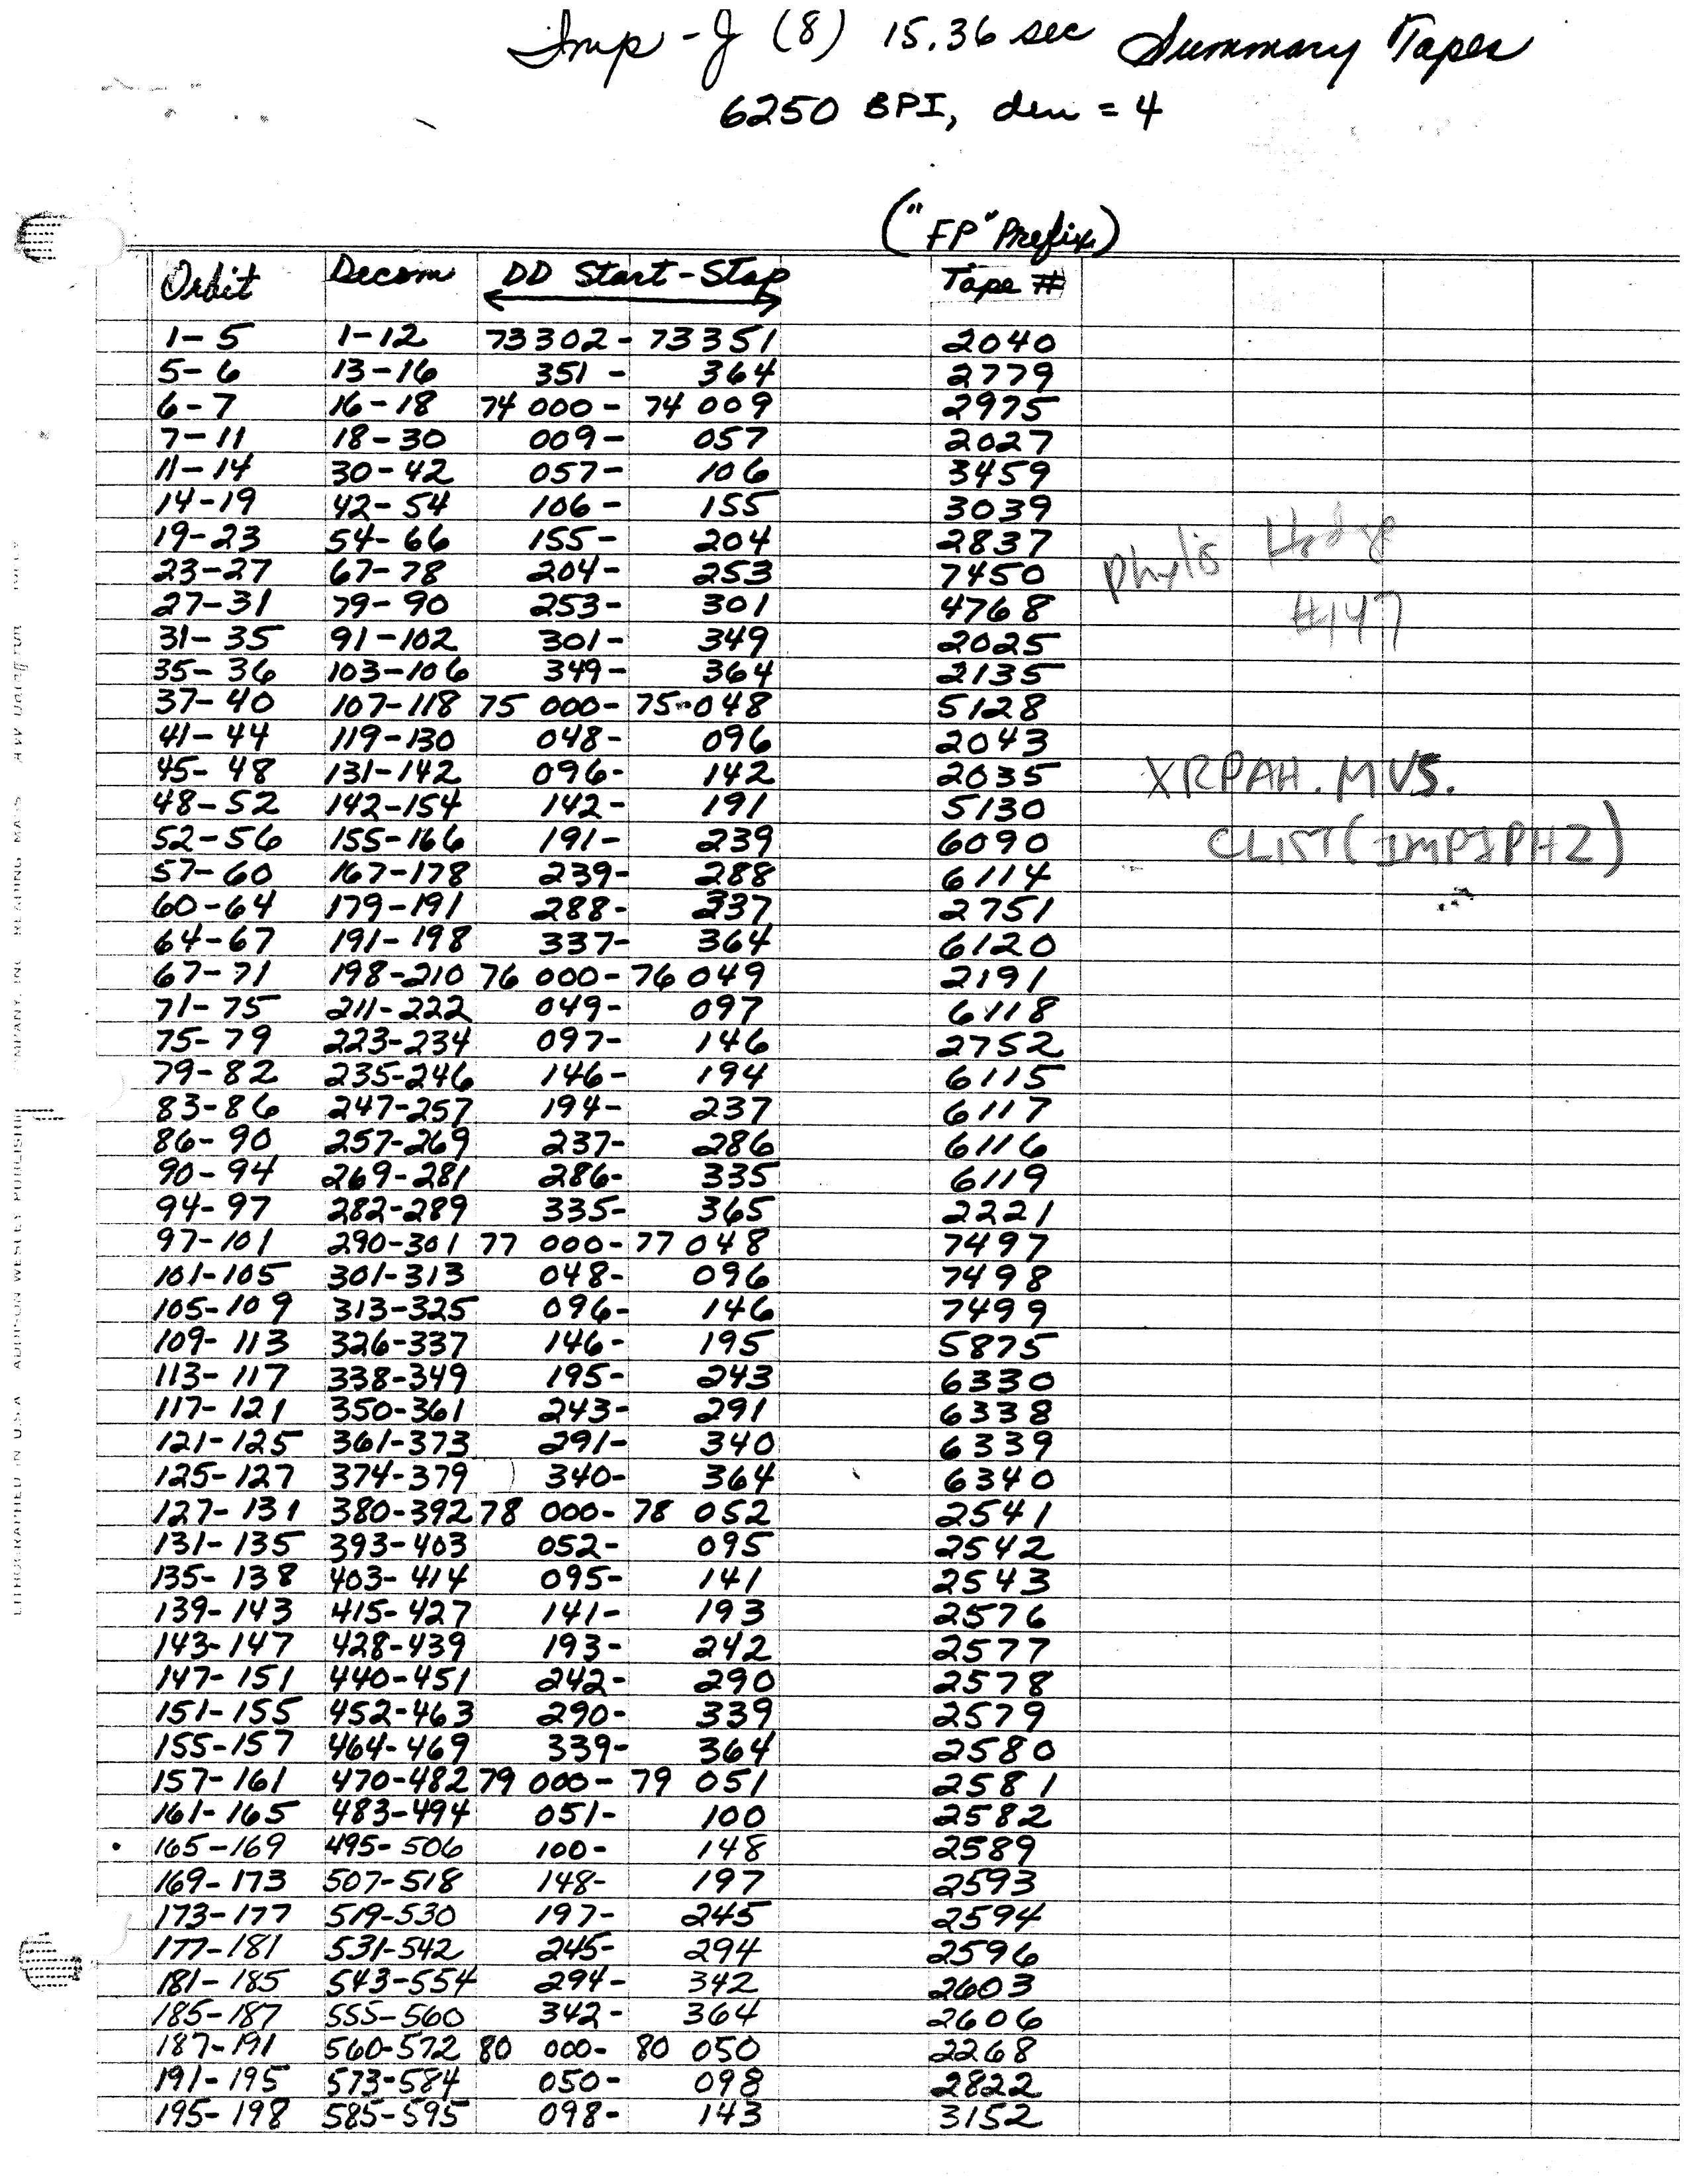 Imp-J (8) 15.36 sec Summary Tapes
6250 BPI, den = 4
("FP" Prefix)
Orbit Decom DD Start-Stop Tape #
1-5 1-12 73302-73351 2040
5-6 13-16 351-364 2779
6-7 16-18 74 000-74 009 2975
7-11 18-30 009-057 2027
11-14 30-42 057-106 3459
14-19 42-54 106-155 3039
19-23 54-66 155-204 2837
23-27 67-78 204-253 7450
27-31 79-90 253-301 4768
31-35 91-102 301-349 2025
35-36 103-106 349-364 2135
37-40 107-118 75 000-75-048 5128
41-44 119-130 048-096 2043
45-48 131-142 096-142 2035
48-52 142-154 142-191 5130
52-56 155-166 191-239 6090
57-60 167-178 239-288 6114
60-64 179-191 288-337 2751
64-67 191-198 337-364 6120
67-71 198-210 76 000-76 049 2191
71-75 211-222 049-097 6118
75-79 223-234 097-146 2752
79-82 235-246 146-194 6115
83-86 247-257 194-237 6117
86-90 257-269 237-286 6116
90-94 269-281 286-335 6119
94-97 282-289 335-365 2221
97-101 290-301 77 000-77 048 7497
101-105 301-313 048-096 7498
105-109 313-325 096-146 7499
109-113 326-337 146-195 5875
113-117 338-349 195-243 6330
117-121 350-361 243-291 6338
121-125 361-373 291-340 6339
125-127 374-379 340-364 6340
127-131 380-392 78 000-78 052 2541
131-135 393-403 052-095 2542
135-138 403-414 095-141 2543
139-143 415-427 141-193 2576
143-147 428-439 193-242 2577
147-151 440-451 242-290 2578
151-155 452-463 290-339 2579
155-157 464-469 339-364 2580
157-161 470-482 79 000-79 051 2581
161-165 483-494 051-100 2582
165-169 495-506 100-148 2589
169-173 507-518 148-197 2593
173-177 519-530 197-245 2594
177-181 531-542 245-294 2596
181-185 543-554 294-342 2603
185-187 555-560 342-364 2606
187-191 560-572 80 000-80 050 2268
191-195 573-584 050-098 2822
195-198 585-595 098-143 3152
Phylis Hodge
#147
XRPAH.MVS.
CLIST(IMPJPH2)
LITHOGRAPHED IN U.S.A. ADDISON WESLEY READING MASS